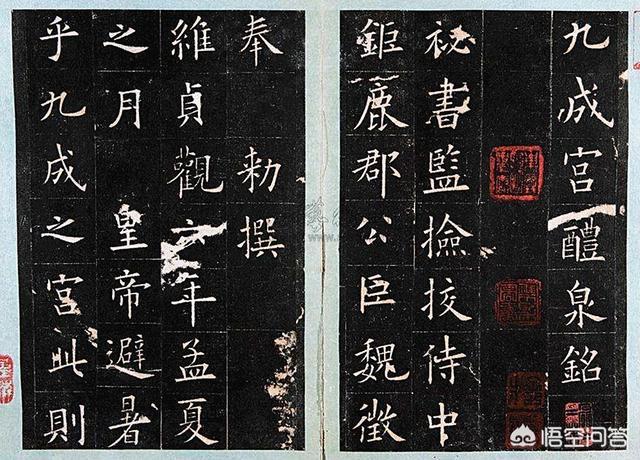 九成宮醴泉銘
秘書監撿挍侍中
鉅鹿郡公臣魏徵
奉 勑撰
維貞觀六年孟夏
之月 皇帝避暑
乎九成之宮此則
悟空问答